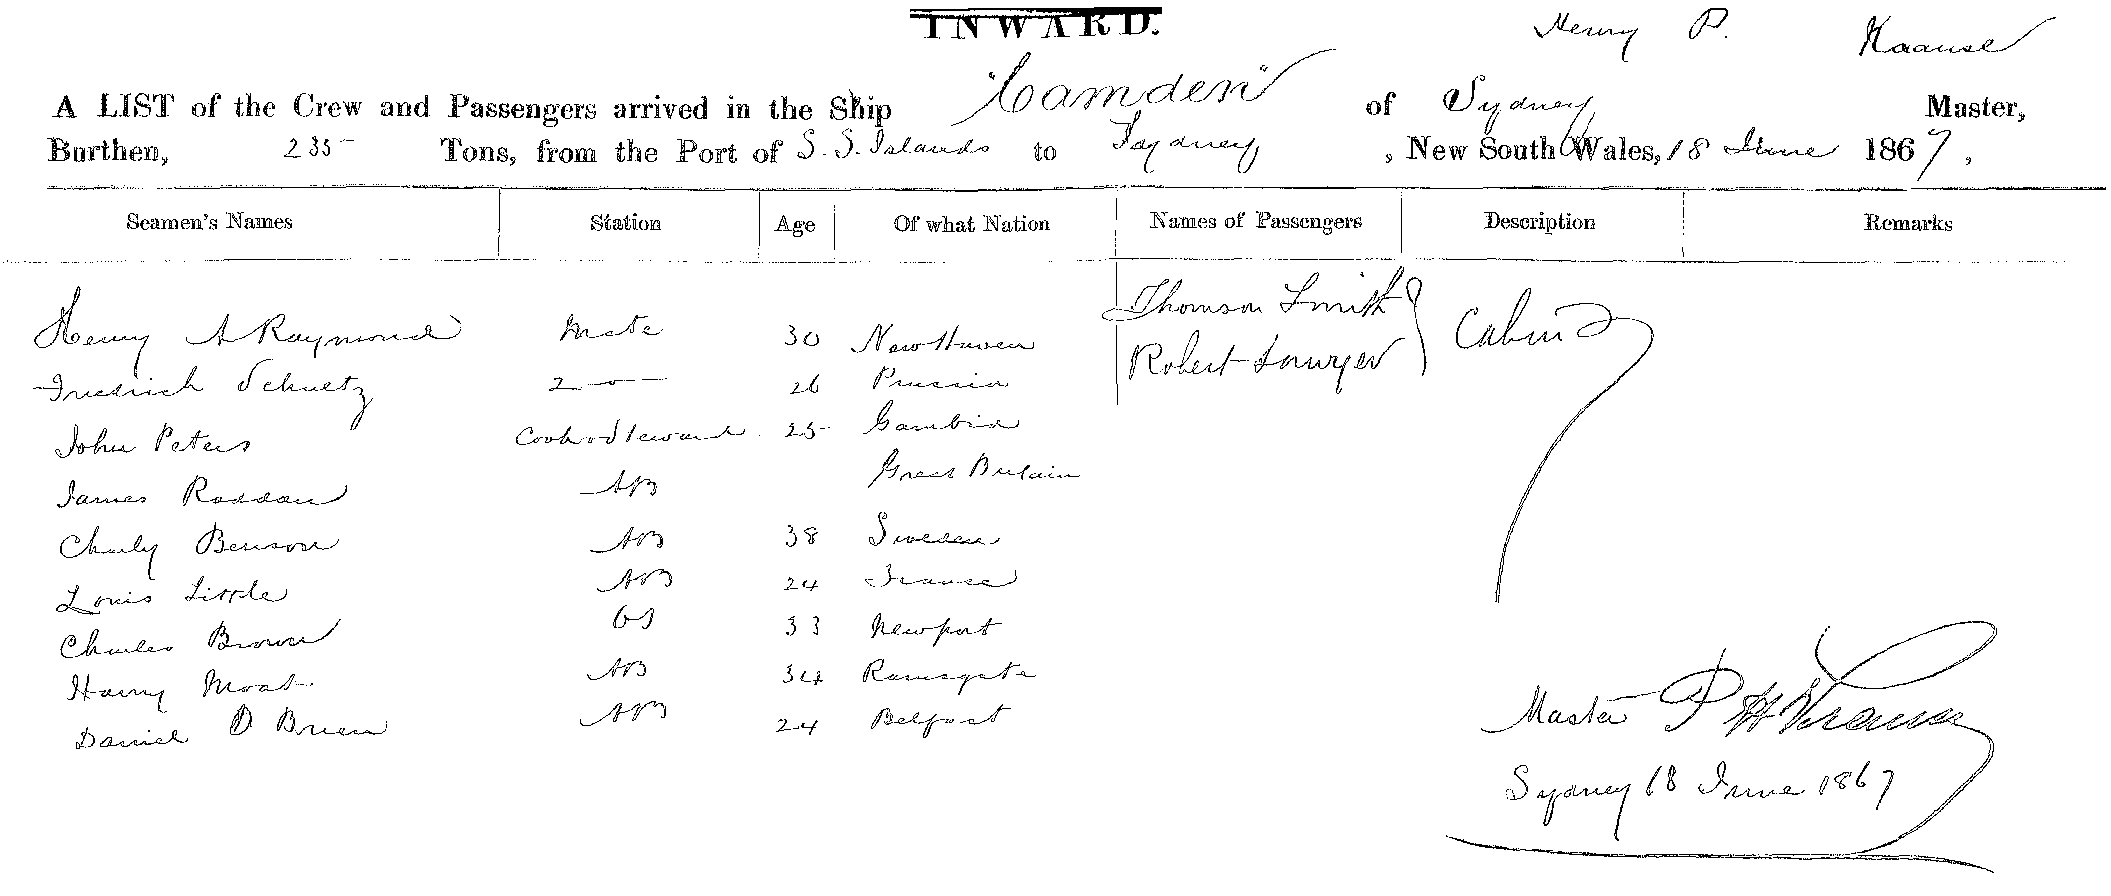 INWARD.
Henry P. Kaause
A LIST of the Crew and Passengers arrived in the Ship "Camden" of Sydney Master,
Burthen, 235 Tons, from the Port of S. S. Islands to Sydney, New South Wales, 18 June 1867,
Seamen's Names Station Age Of what Nation Names of Passengers Description Remarks
Henry A Raymond Mate 30 New Haven Thomson Smith Cabin
Fredrich Schultz 2 —"— 26 Prussia Robert Sawyer
John Peters Cook & Steward 25 Gambia
James Raddan AB Great Britain
Charly Benson AB 38 Sweden
Louis Little AB 24 France
Charles Brown OS 33 Newport
Harry Moat AB 34 Ramsgate
Daniel O Brien AB 24 Belfast
Master P H Krause
Sydney 18 June 1867